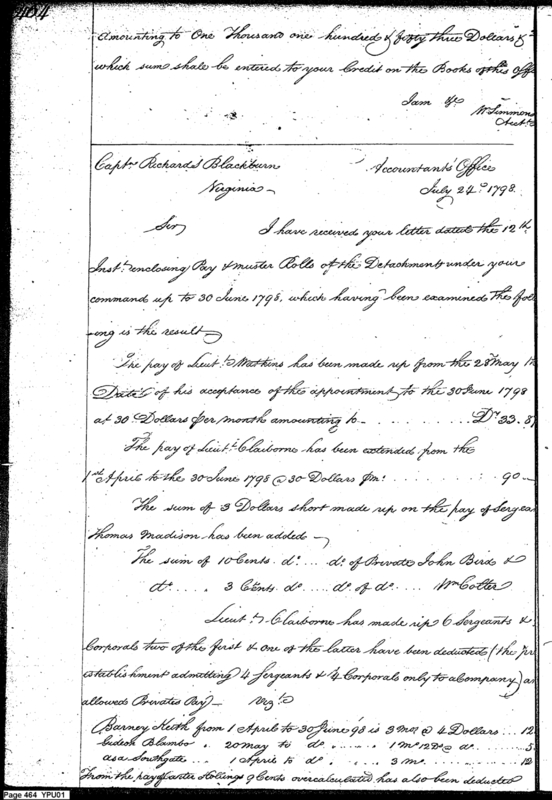 464
amounting to One Thousand one hundred & forty three Dollars &
which sum shall be entered to your Credit on the Books of this Offi
I am &c
Wm Simmons
Acct
Capt. Richard S Blackburn
Accountant's Office
Virginia
July 24th 1798
Sir
I have received your letter dated the 12th
Inst. enclosing Pay & muster Rolls of the Detachment under your
command up to 30 June 1798, which having been examined the foll
-ing is the result
The pay of Lieut. Watkins has been made up from the 28 May the
Date of his acceptance of the appointment to the 30 June 1798
at 30 Dollars per month amounting to Drs 33.8
The pay of Lieut. Claiborne has been extended from the
1st April to the 30 June 1798 @ 30 Dollars pm. 90 —
The sum of 3 Dollars short made up on the pay of Sergea
Thomas Madison has been added
The sum of 10 Cents do. ... do. of Private John Bird &
do. .... 3 Cents do. ... do. of do. ... Wm Colter
Lieut. Claiborne has made up 6 Sergeants &
Corporals two of the first & one of the latter have been deducted (the pre
establishment admitting 4 Sergeants & 4 Corporals only to a Company) an
allowed Privates Pay — Vizt
Barney Keith from 1 April to 30 June 98 is 3 mos @ 4 Dollars ... 12
Gideon Blambo . 20 May to do ..... 1 mo 12 Ds @ do. .... 5
Asa Southgate ... 1 April to do ..... 3 m. .... 12
From the pay of Carter Hollings 9 Cents overcalculated has also been deducted
Page 464 YPU01